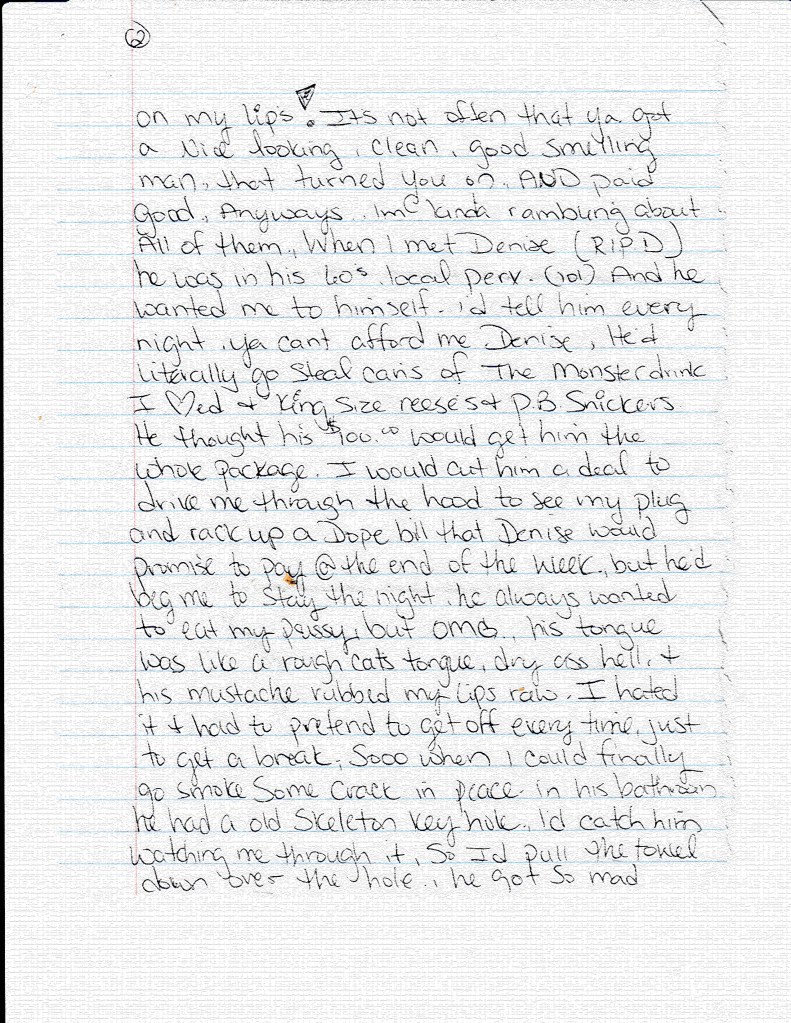 ②
on my lips! Its not often that ya got
a Nice looking, clean, good smelling
man, that turned you on, AND paid
Good., Anyways.. Im kinda rambling about
All of them., When I met Denise (R.I.P.D)
he was in his 60s, local perv. (lol) And he
wanted me to himself. i'd tell him every
night, ya cant afford me Denise, He'd
Literally go steal cans of The Monster drink
I ♡ed & King Size reese's & P.B. Snickers
He thought his $100.00 would get him the
whole package. I would cut him a deal to
drive me through the hood to see my plug
and rack up a Dope bill that Denise would
promise to pay @ the end of the week., but he'd
beg me to stay the night, he always wanted
to eat my pussy, but OMG., his tongue
was like a rough cats tongue, dry ass hell, &
his mustache rubbed my lips raw. I hated
it & had to pretend to get off every time, just
to get a break, Sooo when I could finally
go smoke Some Crack in peace in his bathroom
he had a old Skeleton key hole., I'd catch him
watching me through it, So I'd pull the towel
down over the hole., he got So mad